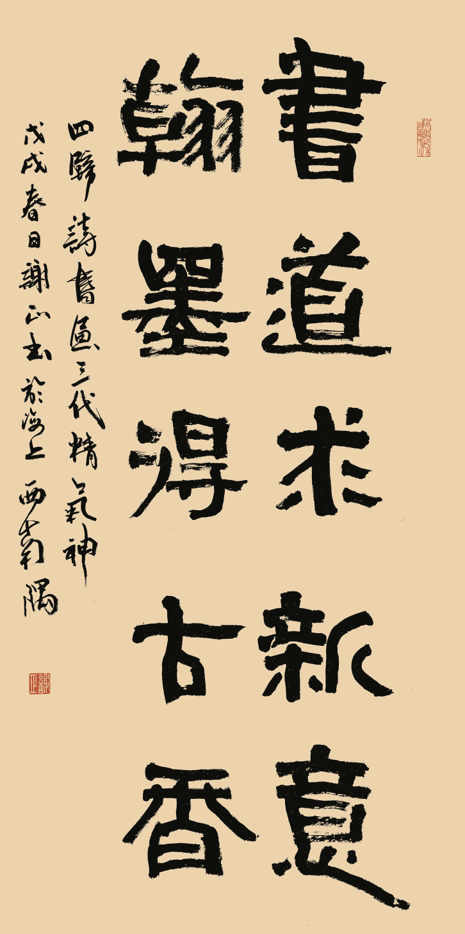 書道求新意
翰墨得古香
四歸詩書盈三代精氣神
戊戌春日謝山書於海上西南隅